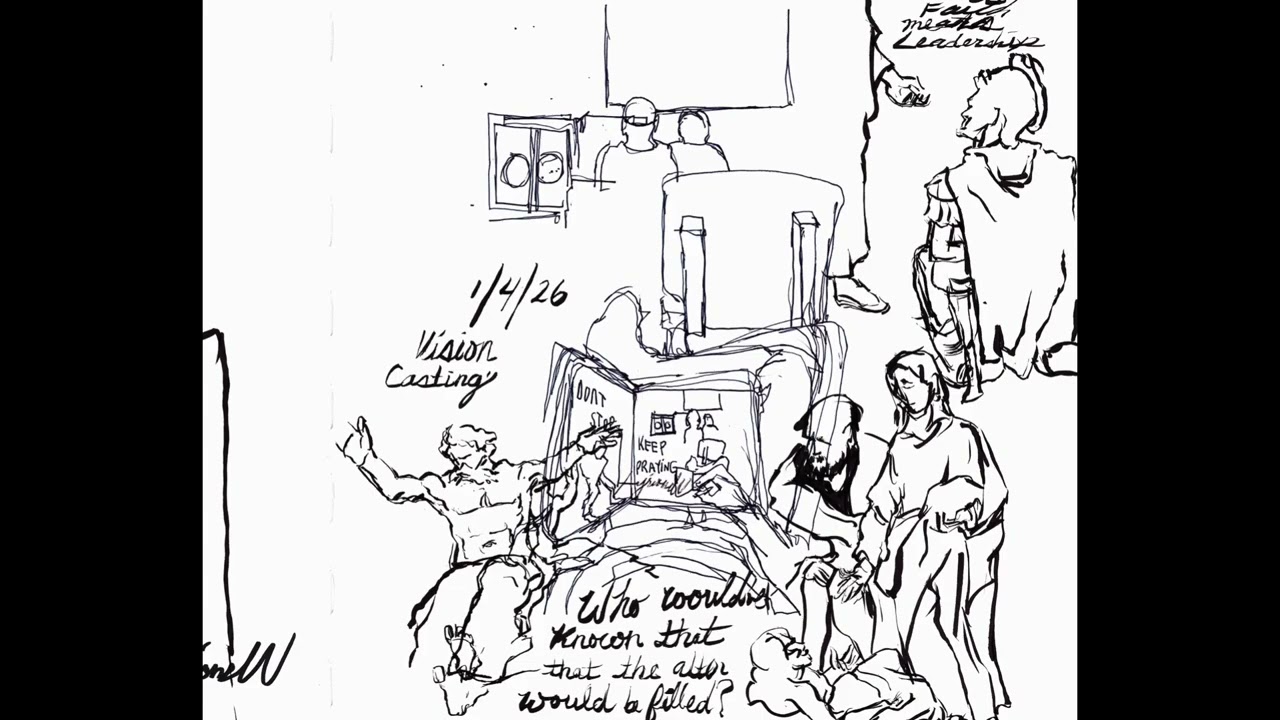 Faith
means
Leadership
1/4/26
Vision
Casting
DONT
STOP
KEEP
PRAYING
Who would've
Known that
that the alter
would be filled?